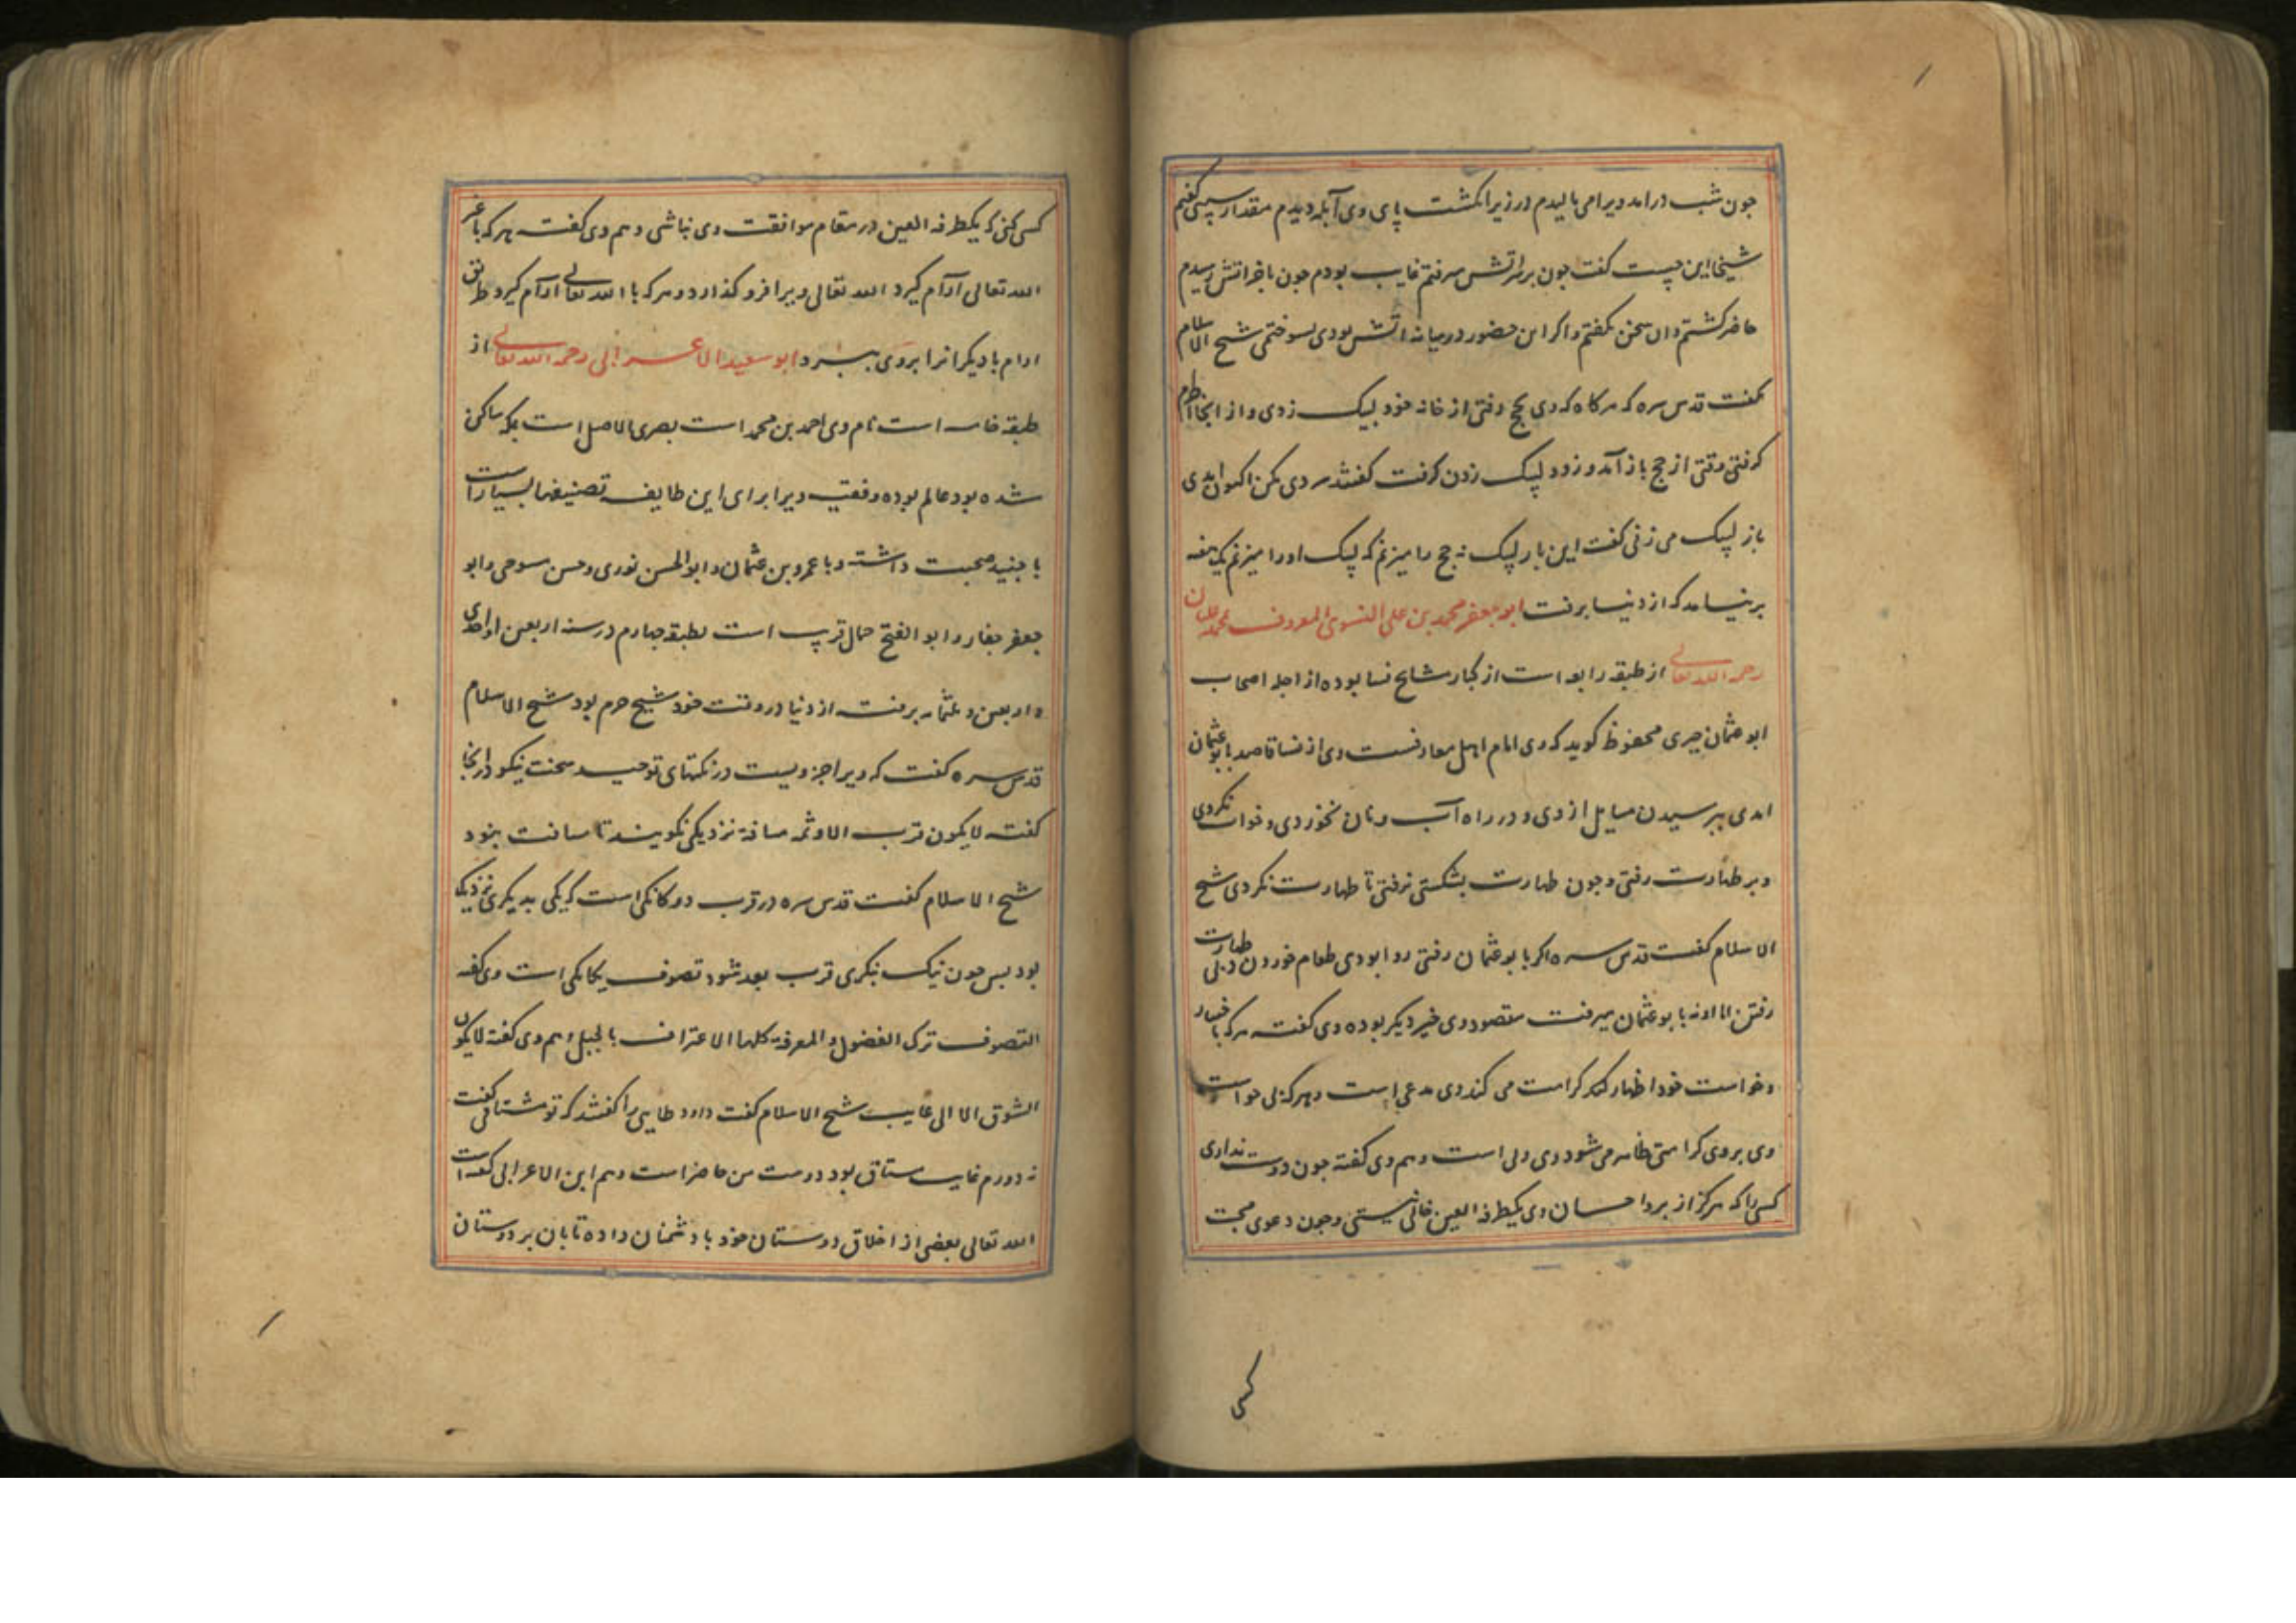 جون شب درامد ویرا می بالیدم در زیر انکشت پای وی آبله دیدم مقدار سپسی کفتم
شیخا این جیست کفت جون بر سر اتش میرفتم غایب بودم جون باخر اتش رسیدم
حاضر کشتم وان سخن بکفتم واکر این حضور در میانه اتش بودی بسوختمی شیخ الاسلام
کفت قدس سره که هرکاه که وی بحج رفتی از خانه خود لبیک زدی و از انجا احرام
کرفتی وقتی از حج باز آمد و زود لبیک زدن کرفت کفتند سردی مکن اکنون امدی
باز لبیک می زنی کفت این بار لبیک نه حج را میزنم که لبیک او را میزنم یک هفته
برنیامد که از دنیا برفت ابو جعفر محمد بن علی النسوی المعروف بمحمد علیان
رحمه الله تعالی از طبقه رابعه است از کبار مشایخ نسا بوده از اجله اصحاب
ابو عثمان حیری محفوظ کوید که وی امام اهل معارفست وی از نسا قاصد بابو عثمان
امدی بپرسیدن مسایل از وی و در راه آب و نان نخوردی و خواب نکردی
و بر طهارت رفتی و جون طهارت بشکستی نرفتی تا طهارت نکردی شیخ
الاسلام کفت قدس سره اکر با بو عثمان رفتی روا بودی طعام خوردن و بی طهارت
رفتن اما او نه با بو عثمان میرفت مقصود وی خیر دیکر بوده وی کفت هرکه باختیار
و خواست خود اظهار کرامت می کند وی مدعی است و هرکه بی خواست
وی بر وی کرامتی ظاهر می شود وی ولی است و هم وی کفته جون دوست نداری
کسی را که هرکز از بر و احسان وی یکطرفه العین خالی نیستی و جون دعوی محبت
کسی
کسی کنی که یکطرفه العین در مقام موافقت وی نباشی و هم وی کفت هرکه با غیر
الله تعالی آرام کیرد الله تعالی ویرا فرو کذارد و هرکه با الله تعالی آرام کیرد طریق
ارام با دیکرانرا بر وی ببرد ابو سعید الاعرابی رحمه الله تعالی از
طبقه خامسه است نام وی احمد بن محمد است بصری الاصل است بمکه ساکن
شده بود عالم بوده و فقیه ویرا برای این طایفه تصنیفها بسیار است
با جنید صحبت داشته و با عمرو بن عثمان و ابو الحسن نوری و حسن مسوحی و ابو
جعفر حفار و ابو الفتح حمال قرب است بطبقه جهارم در سنه اربعین او احدی
و اربعین و ثلثمایه برفت از دنیا در وقت خود شیخ حرم بود شیخ الاسلام
قدس سره کفت که ویرا جزویست در نکتهای توحید سخت نیکو در انجا
کفته لا یکون قرب الا و ثمه مسافة نزدیکی نکویند تا مسافت نبود
شیخ الاسلام کفت قدس سره در قرب دوکانکی است که یکی بدیکری نزدیک
بود بس جون نیک بنکری قرب بعد شود تصوف یکانکی است وی کفته
التصوف ترک الفضول و المعرفة کلها الاعتراف بالجهل و هم وی کفته لا یکون
الشوق الا الی غایب شیخ الاسلام کفت داود طایی را کفتند که تو مشتاقی کفت
نه دورم غایب مشتاق بود دوست من حاضر است و هم ابن الاعرابی کفته است
الله تعالی بعضی از اخلاق دوستان خود با دشمنان داده تا بان بر دوستان